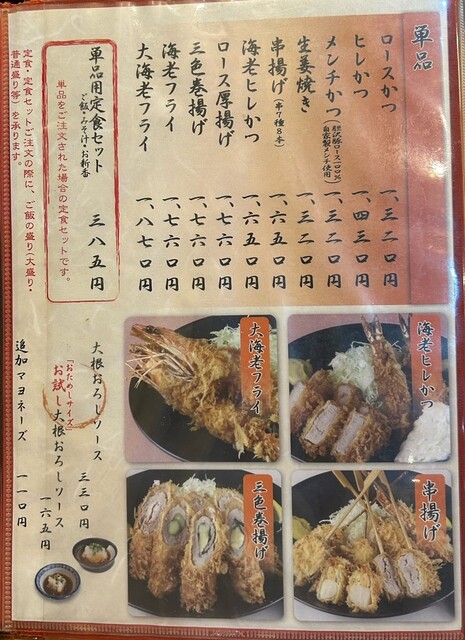 単品
ロースかつ 一、三二〇円
ヒレかつ 一、四三〇円
メンチかつ(胆沢豚ロース100%自家製メンチ使用) 一、三二〇円
生姜焼き 一、三二〇円
串揚げ(串7種8本) 一、六五〇円
海老ヒレかつ 一、六五〇円
ロース厚揚げ 一、七六〇円
三色巻揚げ 一、七六〇円
海老フライ 一、七六〇円
大海老フライ 一、八七〇円
単品用定食セット 三八五円
ご飯・みそ汁・お新香
単品をご注文された場合の定食セットです。
定食・定食セットご注文の際に、ご飯の盛り(大盛り・
普通盛り等)を承ります。
海老ヒレかつ
大海老フライ
串揚げ
三色巻揚げ
大根おろしソース 三三〇円
「おためしサイズ」
お試し大根おろしソース 一六五円
追加マヨネーズ 一一〇円